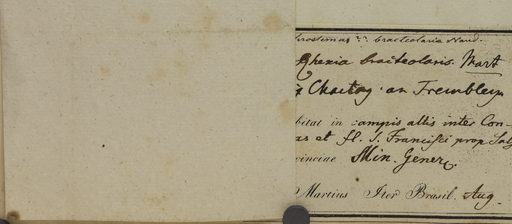 bracteolaria Naud.
Rhexia bracteolaris. Mart
Chaetog. an Trembley
bitat in campis altis inter Con-
as et fl. S. Francisci prop Salg
vinciae Min. Gener.
Martius Iter Brasil. Aug.